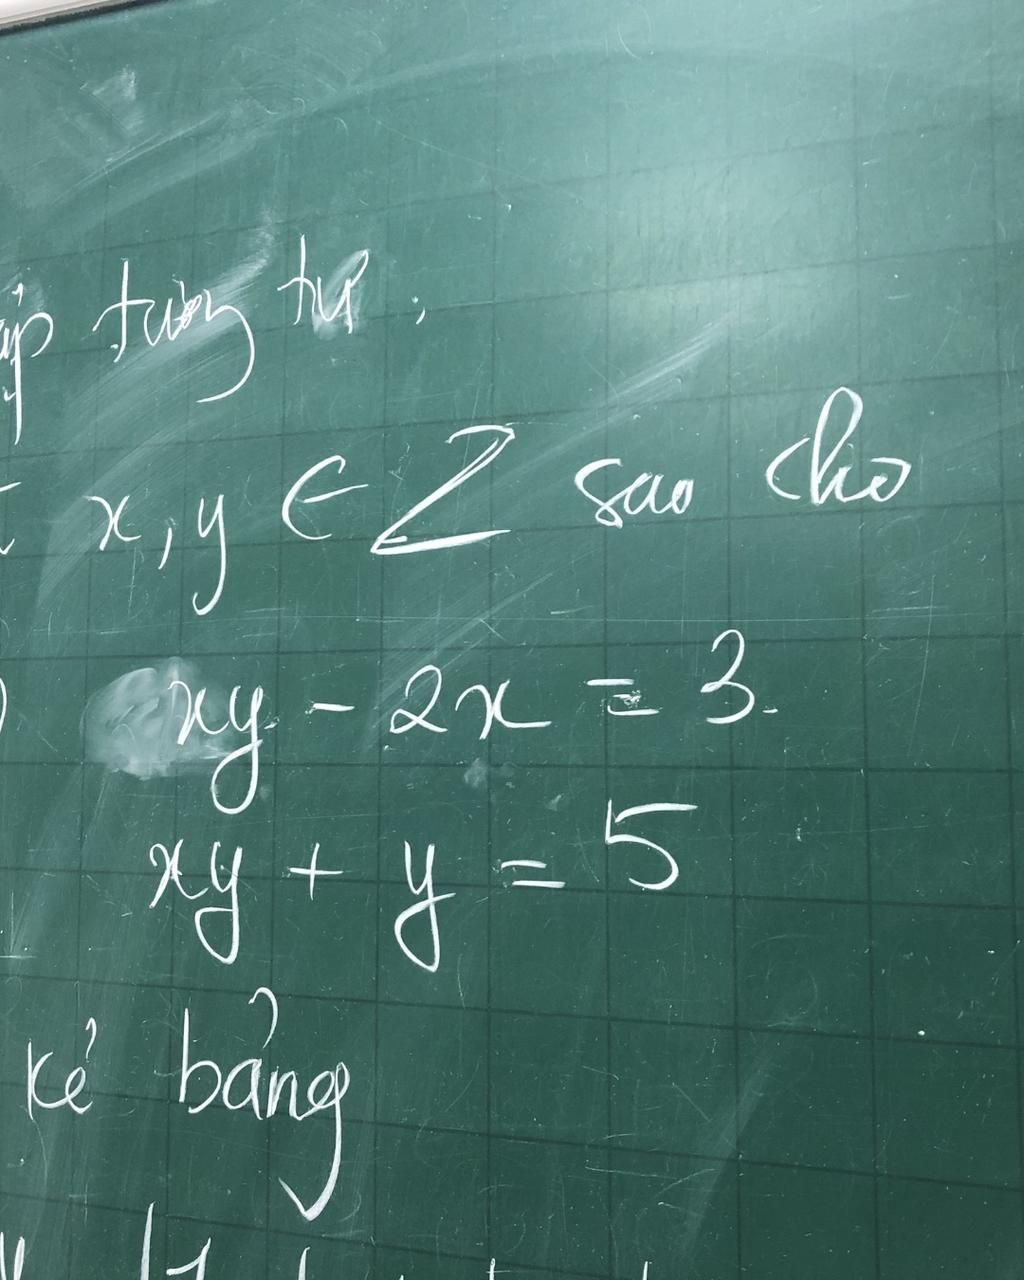 tương tự.
x, y ∈ Z sao cho
xy - 2x = 3.
xy + y = 5
kẻ bảng